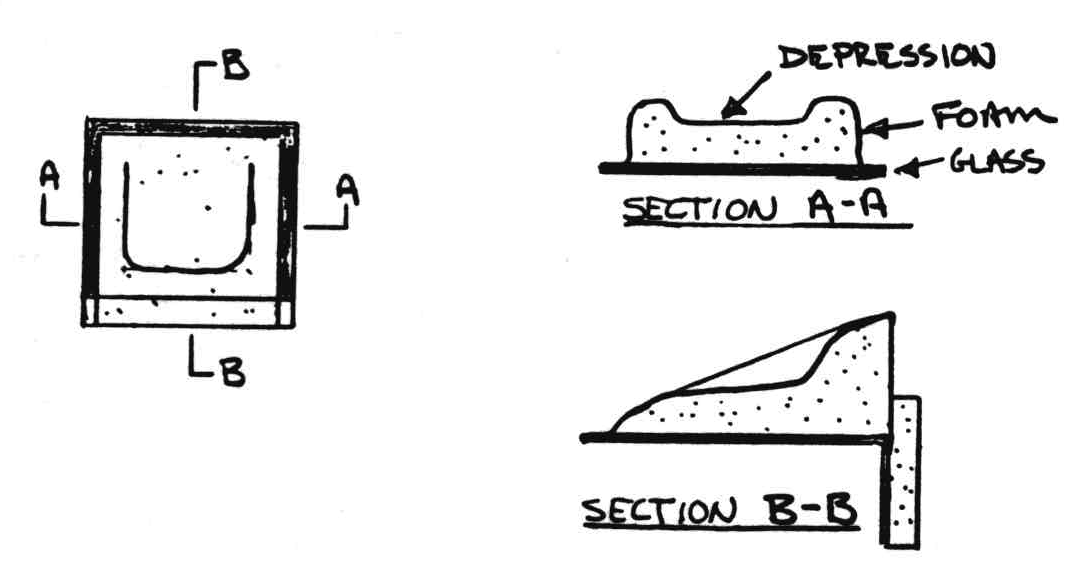 B
A
A
B
DEPRESSION
FOAM
GLASS
SECTION A-A
SECTION B-B